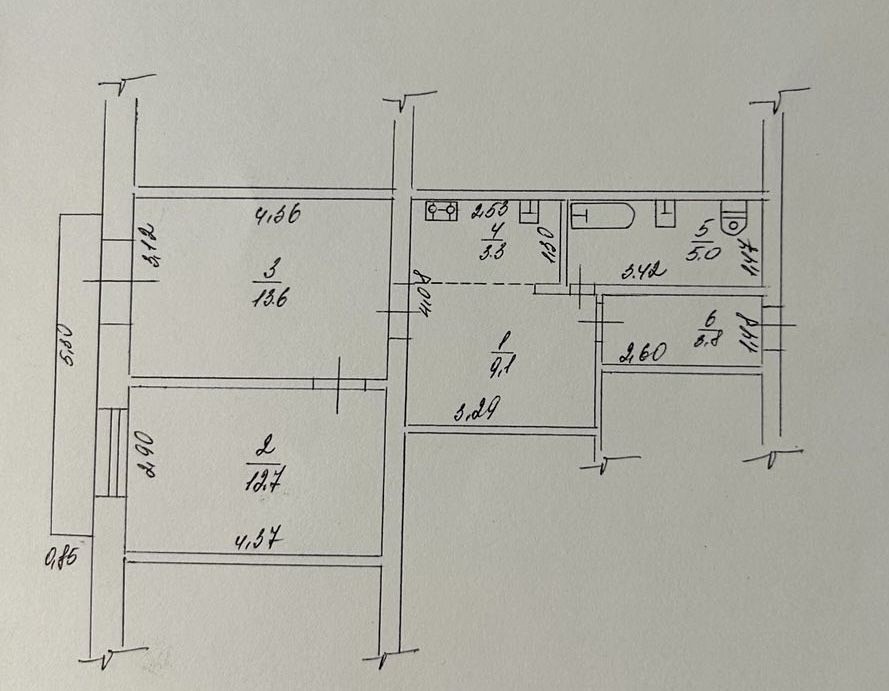 4,36
3,12
3
13.6
5,80
2,90
2
12.7
4,37
0,85
2,53
4
3.3
1,30
4,08
1
9,1
3,29
5
5.0
3.42
1,47
6
3,8
2,60
1,48